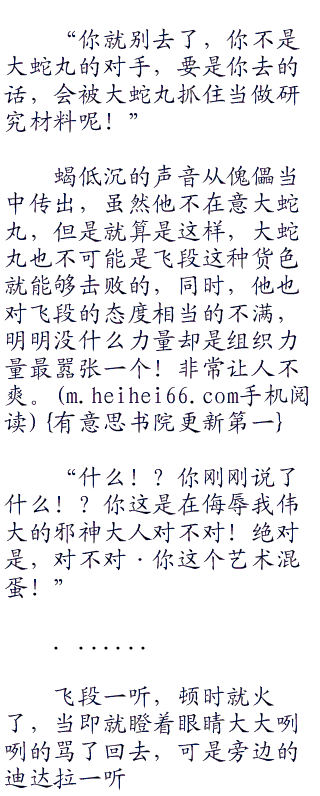 “你就别去了，你不是
大蛇丸的对手，要是你去的
话，会被大蛇丸抓住当做研
究材料呢！”
蝎低沉的声音从傀儡当
中传出，虽然他不在意大蛇
丸，但是就算是这样，大蛇
丸也不可能是飞段这种货色
就能够击败的，同时，他也
对飞段的态度相当的不满，
明明没什么力量却是组织力
量最嚣张一个！非常让人不
爽。(m.heihei66.com手机阅
读){有意思书院更新第一}
“什么！？你刚刚说了
什么！？你这是在侮辱我伟
大的邪神大人对不对！绝对
是，对不对·你这个艺术混
蛋！”
. ......
飞段一听，顿时就火
了，当即就瞪着眼睛大大咧
咧的骂了回去，可是旁边的
迪达拉一听